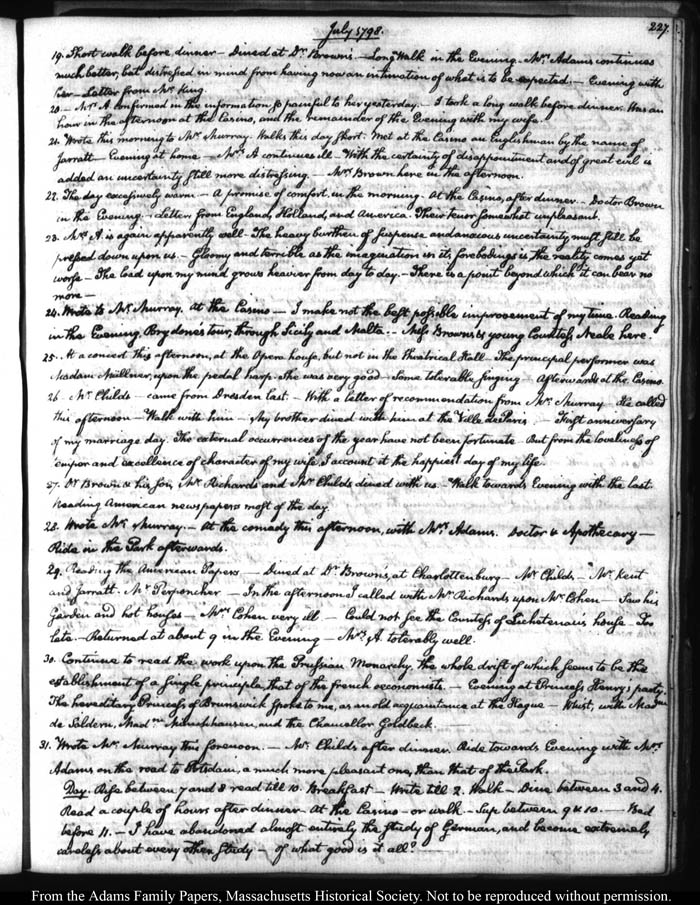 July 1798.
227.
19. Short walk before dinner — Dined at Dr. Brown's — Long Walk in the Evening. Mrs. Adams continues
much better, but distressed in mind from having now an intimation of what is to be expected. — Evening with
her — Letter from Mr. King.
20. — Mrs. A confirmed in the information so painful to her yesterday. — I took a long walk before dinner. Was an
hour in the afternoon at the Casino, and the remainder of the Evening with my wife.
21. Wrote this morning to Mr. Murray. Walks this day short. Met at the Casino an Englishman by the name of
Jarratt — Evening at home — Mrs. A continues ill — With the certainty of disappointment and of great evil is
added an uncertainty still more distressing. — Mrs. Brown here in the afternoon.
22. The day excessively warm — A promise of comfort in the morning. At the Casino, after dinner. — Doctor Brown
in the Evening. Letters from England, Holland, and America. Their tenor somewhat unpleasant.
23. Mrs. A. is again apparently well — The heavy burthen of suspense and anxious uncertainty must still be
pressed down upon us. — Gloomy and terrible as the imagination in its forebodings is, the reality comes yet
worse — The load upon my mind grows heavier from day to day. — There is a point beyond which it can bear no
more —
24. Wrote to Mr. Murray. At the Casino — I make not the best possible improvement of my time. Reading
in the Evening Brydone's tour, through Sicily and Malta. — Miss Brown's & young Countess Neale here.
25. At a concert this afternoon, at the Opera house, but not in the theatrical Hall — The principal performer was
Madam Müllner, upon the pedal harp. She was very good — Some tolerable singing — Afterwards at the Casino.
26. Mr. Childs — came from Dresden last. — With a letter of recommendation from Mr. Murray — He called
this afternoon — Walk with him — My brother dined with him at the Ville de Paris — First anniversary
of my marriage day. The external occurrences of the year have not been fortunate. But from the loveliness of
temper and excellence of character of my wife, I account it the happiest day of my life.
27. Dr. Brown & his son, Mr. Richards and Mr. Childs dined with us. — Walk towards Evening with the last
Reading American newspapers most of the day.
28. Wrote Mr. Murray — At the comedy this afternoon, with Mrs. Adams. Doctor & Apothecary —
Ride in the Park afterwards.
29. Reading the American Papers — Dined at Dr. Brown's, at Charlottenburg — Mr. Childs — Mr. Kent
and Jarratt. Mr. Perponcher — In the afternoon I called with Mr. Richards upon Mr. Cohen — Saw his
Garden and hot houses — Mrs. Cohen very ill — Could not see the Countess of Lichtenau's house — Too
late. — Returned at about 9 in the Evening — Mrs. A. tolerably well.
30. Continue to read the work upon the Prussian Monarchy, the whole drift of which seems to be the
establishment of a single principle, that of the french œconomists. — Evening at Princess Henry's party.
The hereditary Princess of Brunswick spoke to me, as an old acquaintance at the Hague — Whist, with Madme.
de Soldern, Madme. Münchhausen, and the Chancellor Goldbeck.
31. Wrote Mr. Murray this forenoon. — Mr. Childs after dinner. Ride towards Evening with Mrs.
Adams on the road to Potsdam, a much more pleasant one, than that of the Park.
Day. Rise between 7 and 8 read till 10. Breakfast — Write till 2. Walk — Dine between 3 and 4.
Read a couple of hours after dinner — At the Casino — or walk — Sup between 9 & 10 — Bed
before 11. — I have abandoned almost entirely the study of German, and become extremely
careless about every other study — of what good is it all?
From the Adams Family Papers, Massachusetts Historical Society. Not to be reproduced without permission.